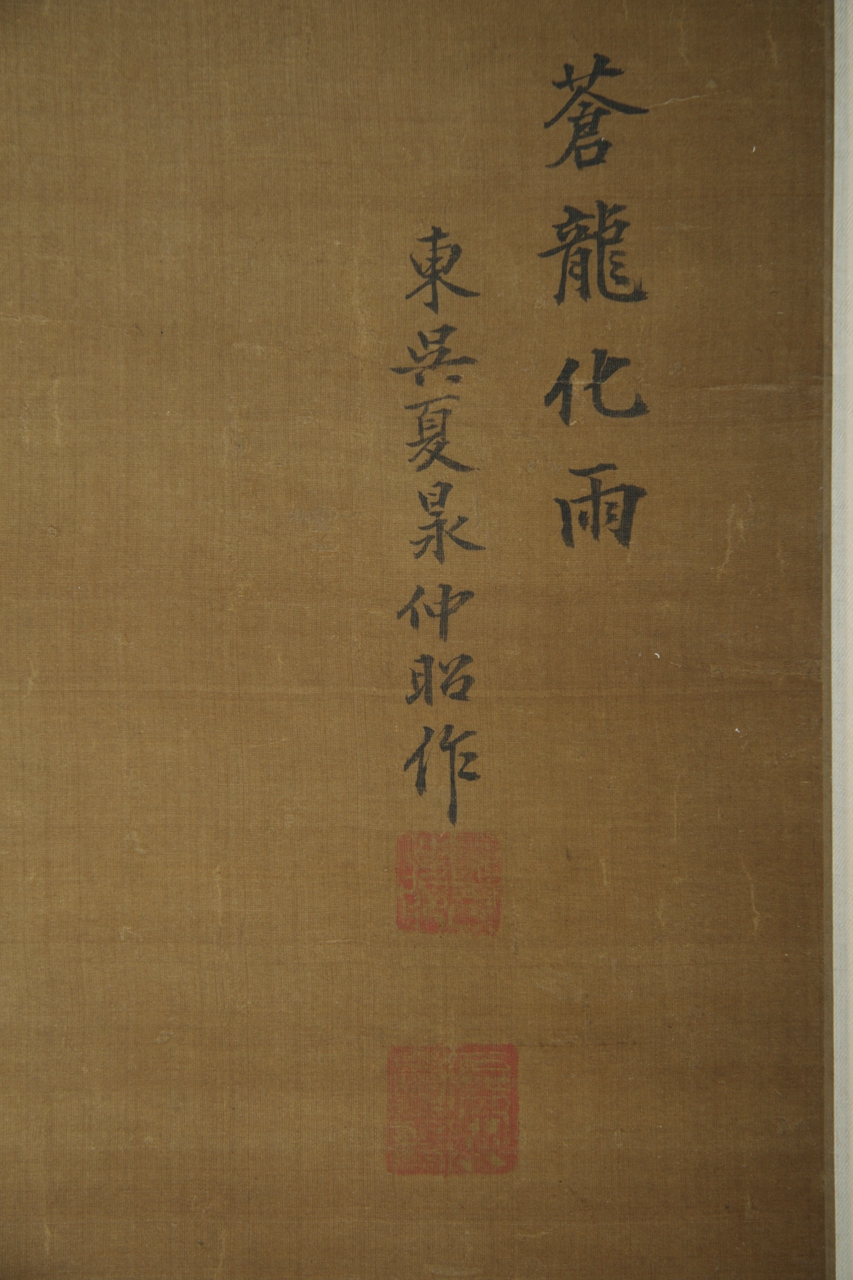 蒼龍化雨
東吳夏㫤仲昭作